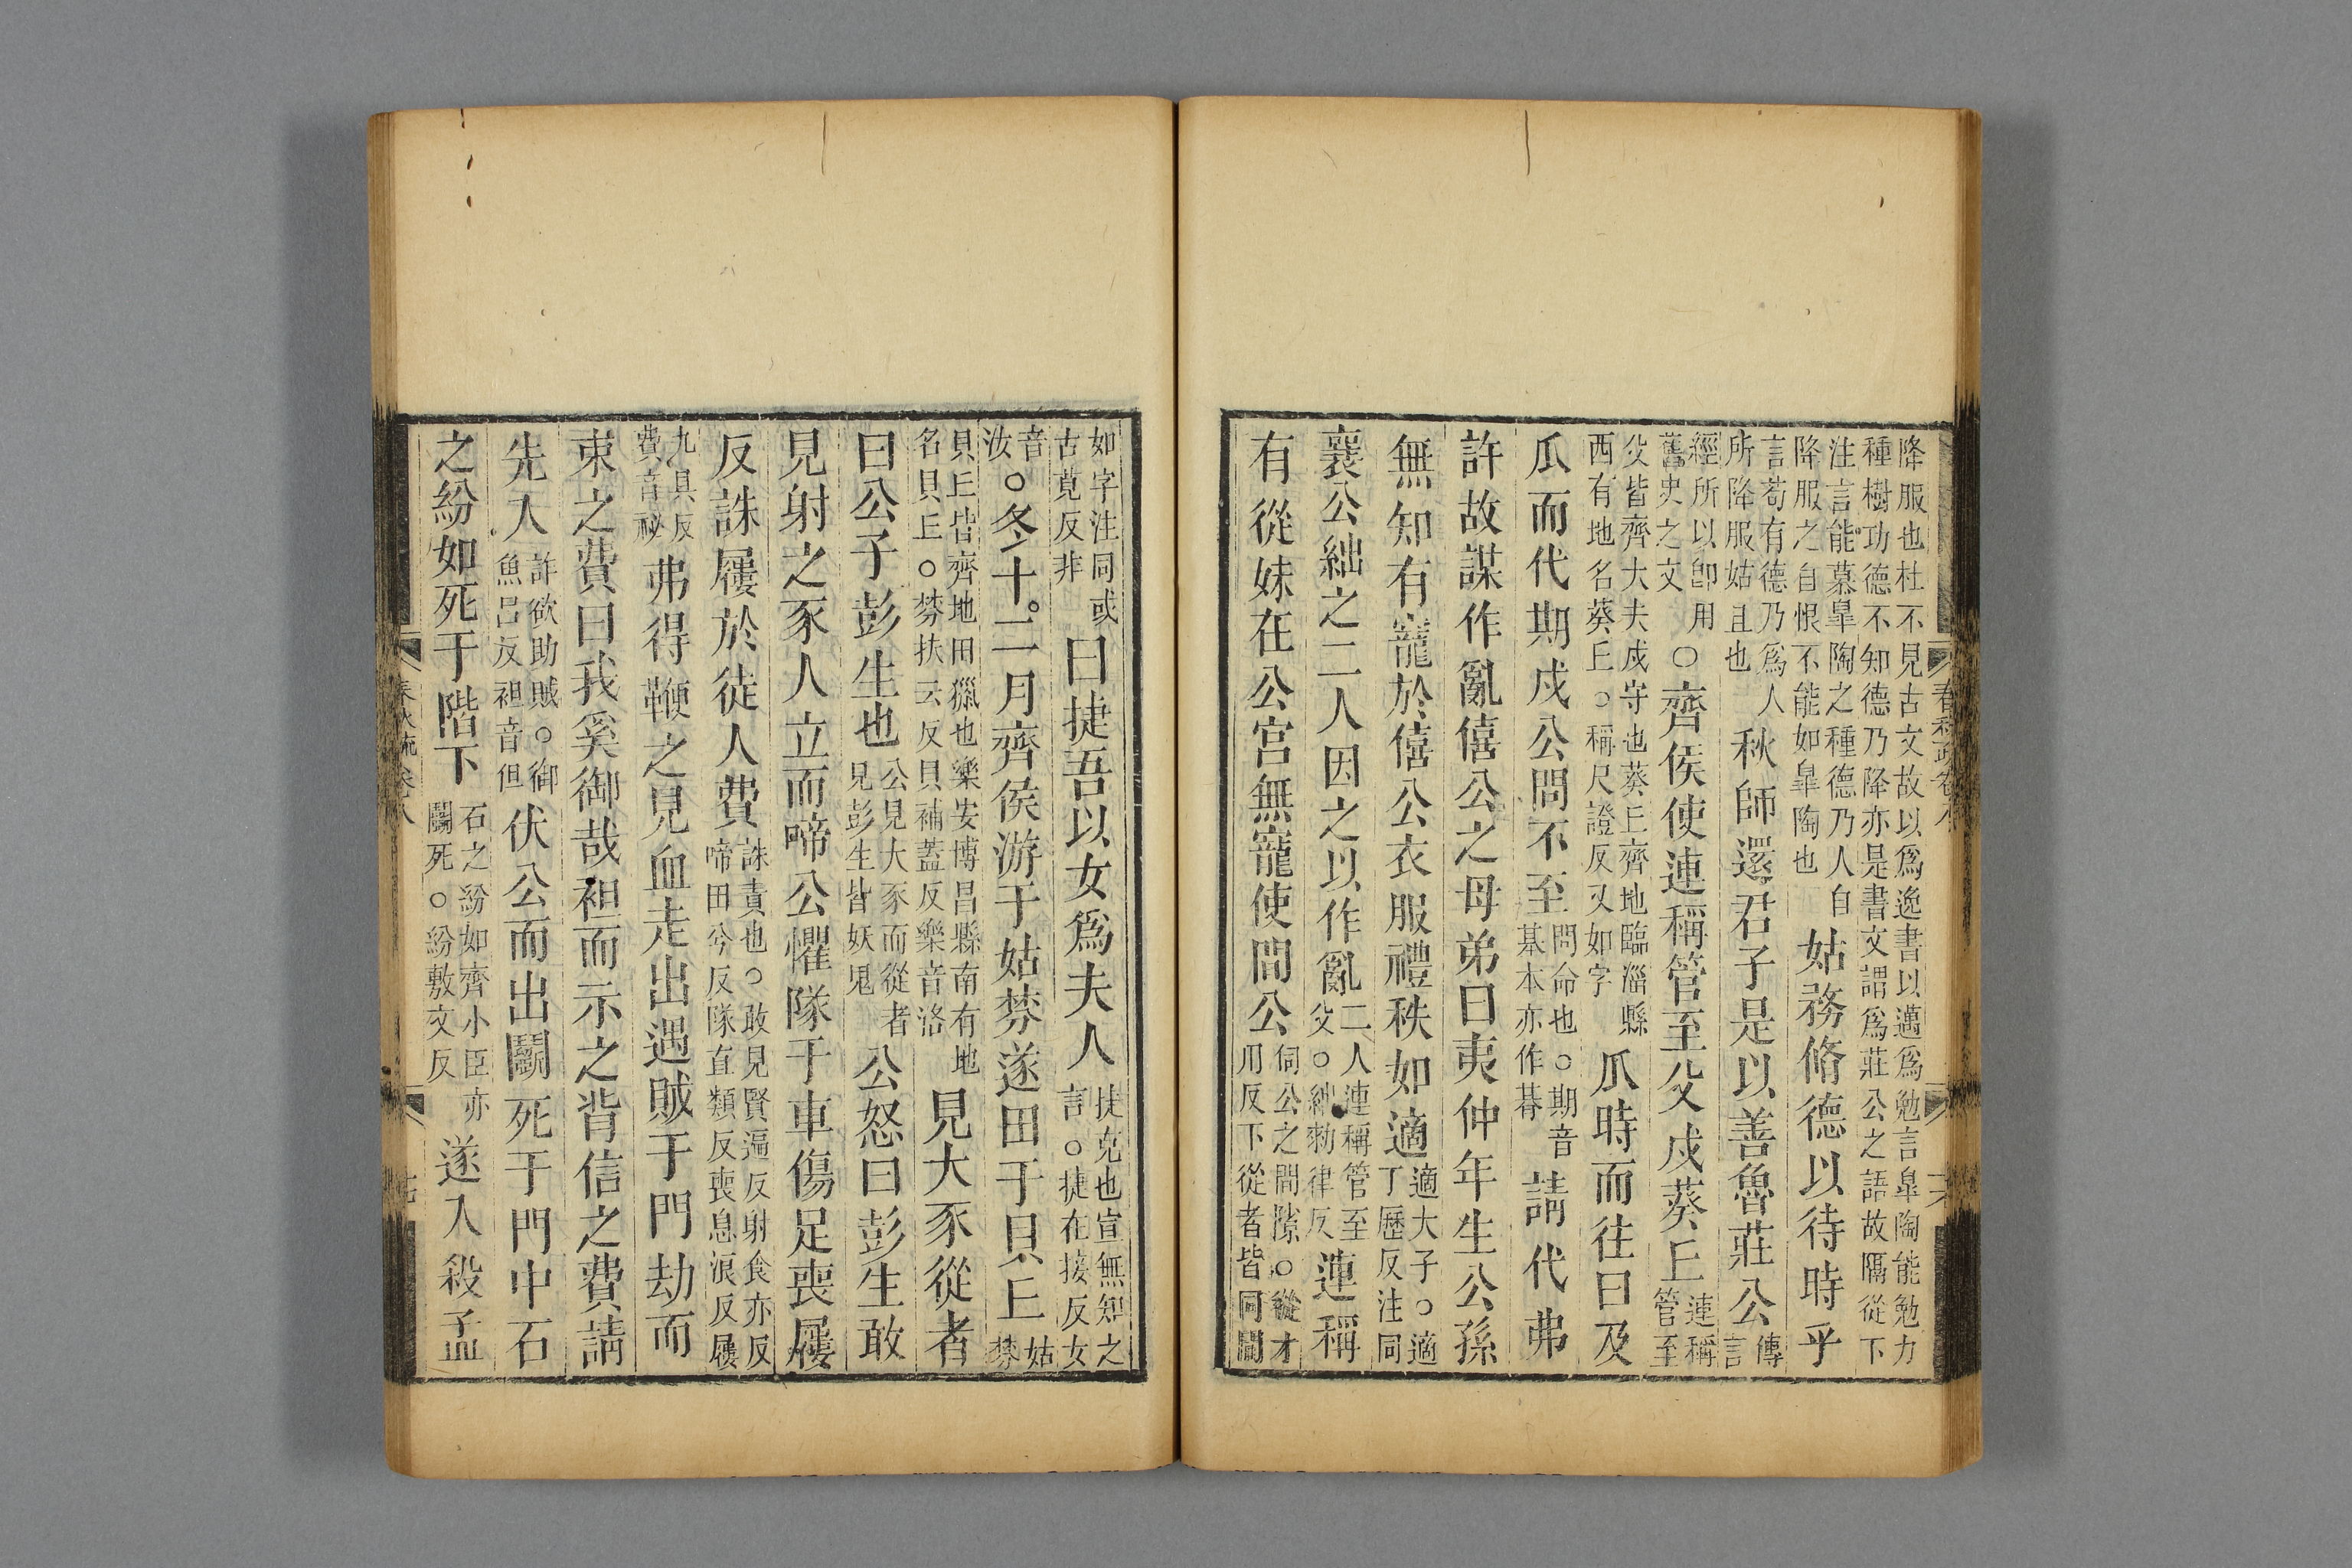 降服也杜不見古文故以爲逸書以邁爲勉言臯陶能勉力
種樹功德不知德乃降亦是書文謂爲莊公之語故隔從下
注言能慕臯陶之種德乃人自
降服之自恨不能如臯陶也
姑務脩德以待時乎
言苟有德乃爲人
所降服姑且也
秋師還君子是以善魯莊公
傳
言
經所以卽用
舊史之文
○齊侯使連稱管至父戍葵丘
連稱
管至
父皆齊大夫戍守也葵丘齊地臨淄縣
西有地名葵丘○稱尺證反又如字
瓜時而往曰及
瓜而代期戍公問不至
問命也○期音
基本亦作朞
請代弗
許故謀作亂僖公之母弟曰夷仲年生公孫
無知有寵於僖公衣服禮秩如適
適大子○適
丁歷反注同
襄公絀之二人因之以作亂
二人連稱管至
父○絀勑律反
連稱
有從妹在公宮無寵使間公
伺公之間隙○從才
用反下從者皆同間
春秋疏卷八
十六
如字注同或
古莧反非
曰捷吾以女爲夫人
捷克也宣無知之
言○捷在接反女
音
汝
○冬十二月齊侯游于姑棼遂田于貝丘
姑
棼
貝丘皆齊地田獵也樂安博昌縣南有地
名貝丘○棼扶云反貝補蓋反樂音洛
見大豕從者
曰公子彭生也
公見大豕而從者
見彭生皆妖鬼
公怒曰彭生敢
見射之豕人立而啼公懼隊于車傷足喪屨
反誅屨於徒人費
誅責也○敢見賢遍反射食亦反
啼田兮反隊直類反喪息浪反屨
九具反
費音祕
弗得鞭之見血走出遇賊于門劫而
束之費曰我奚御哉袒而示之背信之費請
先入
詐欲助賊○御
魚呂反袒音但
伏公而出鬭死于門中石
之紛如死于階下
石之紛如齊小臣亦
鬭死○紛敷文反
遂入殺孟
春秋疏卷八
十七